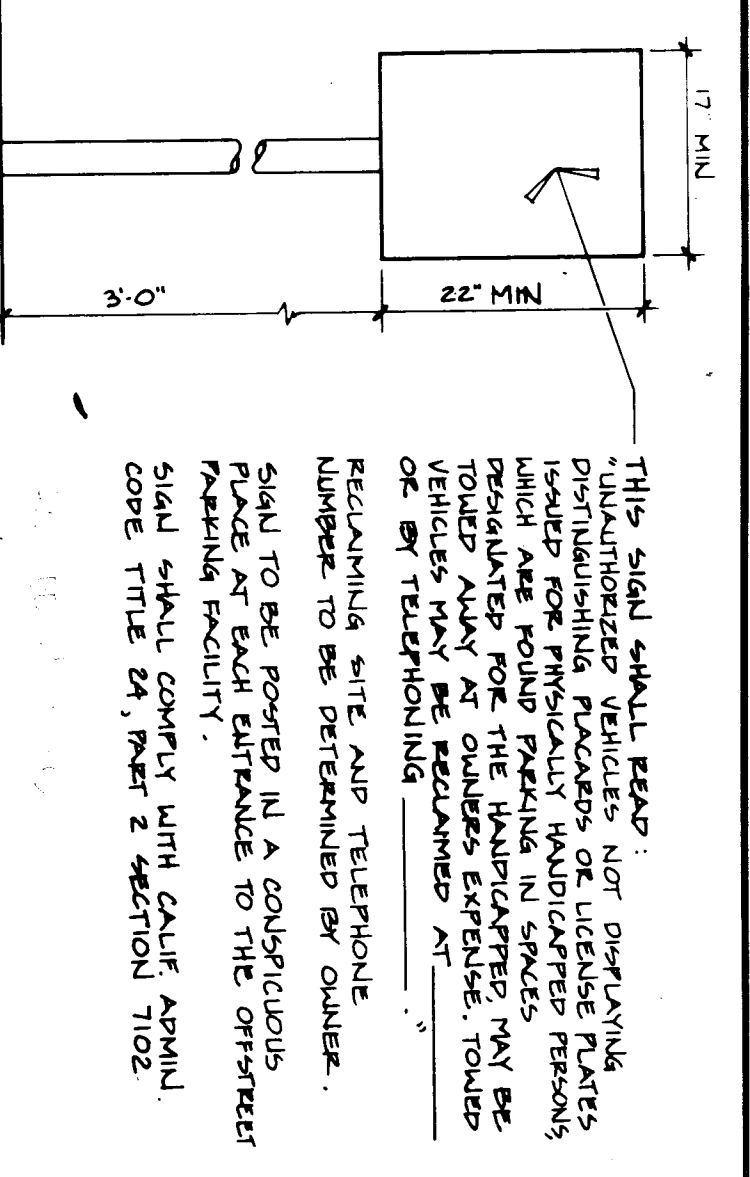 17" MIN
22" MIN
3'-0"
THIS SIGN SHALL READ:
"UNAUTHORIZED VEHICLES NOT DISPLAYING
DISTINGUISHING PLACARDS OR LICENSE PLATES
ISSUED FOR PHYSICALLY HANDICAPPED PERSONS,
WHICH ARE FOUND PARKING IN SPACES
DESIGNATED FOR THE HANDICAPPED, MAY BE
TOWED AWAY AT OWNERS EXPENSE. TOWED
VEHICLES MAY BE RECLAIMED AT ________
OR BY TELEPHONING ________."
RECLAIMING SITE AND TELEPHONE
NUMBER TO BE DETERMINED BY OWNER.
SIGN TO BE POSTED IN A CONSPICUOUS
PLACE AT EACH ENTRANCE TO THE OFFSTREET
PARKING FACILITY.
SIGN SHALL COMPLY WITH CALIF. ADMIN.
CODE TITLE 24, PART 2 SECTION 7102.